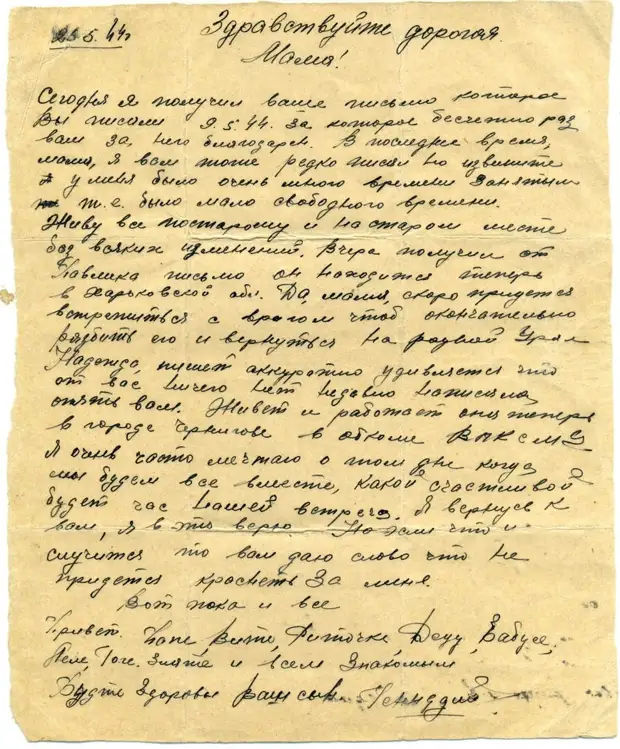 23 5. 44г
Здравствуйте дорогая
Мама!
Сегодня я получил ваше письмо которое
Вы писали 9.5.44. За которое бесчетно раз
вам за него благодарен. В последнее время,
мама, я вам тоже редко писал но извините
у меня было очень много времени занятым
т.е. было мало свободного времени.
Живу все постарому и на старом месте
без всяких изменений. Вчера получил от
Павлика письмо он находится теперь
в Харьковской обл. Да, мама, скоро придется
встретиться с врагом чтоб окончательно
разбить его и вернуться на родной Урал
Надежда, пишет аккуратно удивляется что
от вас ничего нет недавно написала
опять вам. Живет и работает она теперь
в городе Чернигове в обкоме
Я очень часто мечтаю о том дне когда
мы будем все вместе, какой счастливой
будет час нашей встречи. Я вернусь к
вам, я в это верю. Но если что и
случится то вам даю слово что не
придется краснеть за меня.
Вот пока и все
Привет. Папе, Вите, Риточке, Деду, Бабусе,
Леле, Тоге. Зляте и всем знакомым
Будьте здоровы ваш сын. Генидди